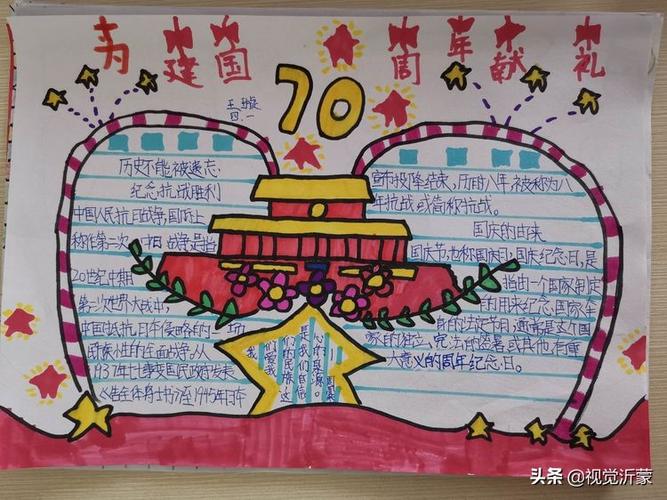 为建国70周年献礼
王
四、一
历史不能被遗忘
纪念抗战胜利
中国人民抗日战争,国际上
称作第二次中日战争是指
20世纪中期
第二次世界大战中,
中国抵抗日本侵略的一场
民族性的全面战争,从
1937年七七事变国民政府发表
《告全体将士书》至1945年日本
宣布投降结束,历时八年,被称为八
年抗战,或简称抗战。
国庆的由来
国庆节,也称国庆日,国庆纪念日,是
指由一个国家制定
的由来纪念国家本
身的法定节日,通常是这个国
家的独立、宪法的签署,或其他有重
大意义的周年纪念日。
头条 @视觉沂蒙